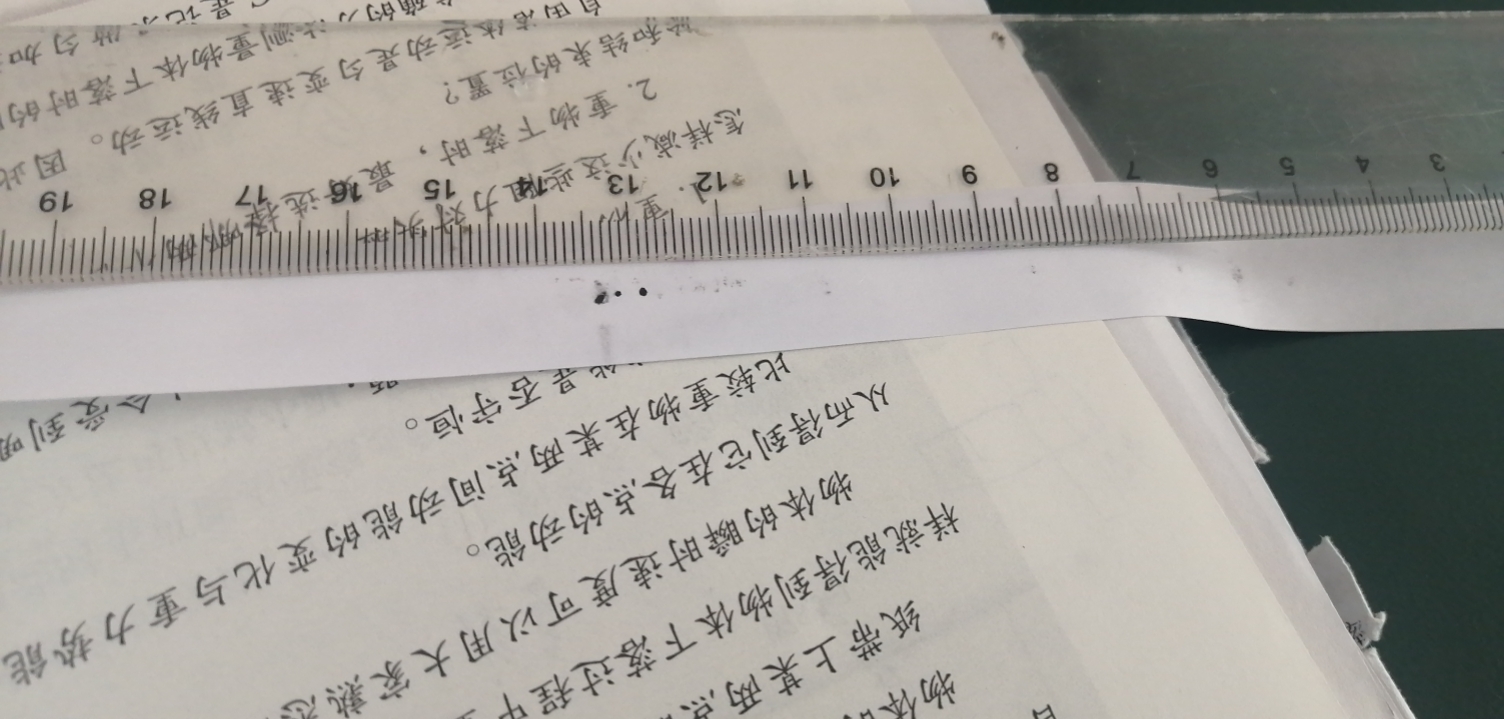 物体的
纸带上某两点
样就能得到物体下落过程中
物体的瞬时速度可以用大家熟悉
从而得到它在各点的动能。
比较重物在某两点间动能的变化与重力势能
能是否守恒。
题
1. 重
会受到明
怎样减少这些阻力对
2. 重物下落时，最好选择
始和结束的位置？
自由落体运动是匀变速直线运动。因此
测量物体下落时的
匀加
3 4 5 6 7 8 9 10 11 12 13 14 15 16 17 18 19